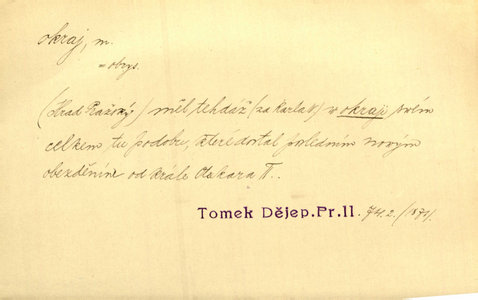 okraj, m.
= obrys.
(Hrad Pražský) měl tehdáž (za Karla IV) v okraji svém
celkem tu podobu, kterí dostal posledním novým
obezděním od krále Otakara II.
Tomek Dějep. Pr. II. 74. 2. /1871/.